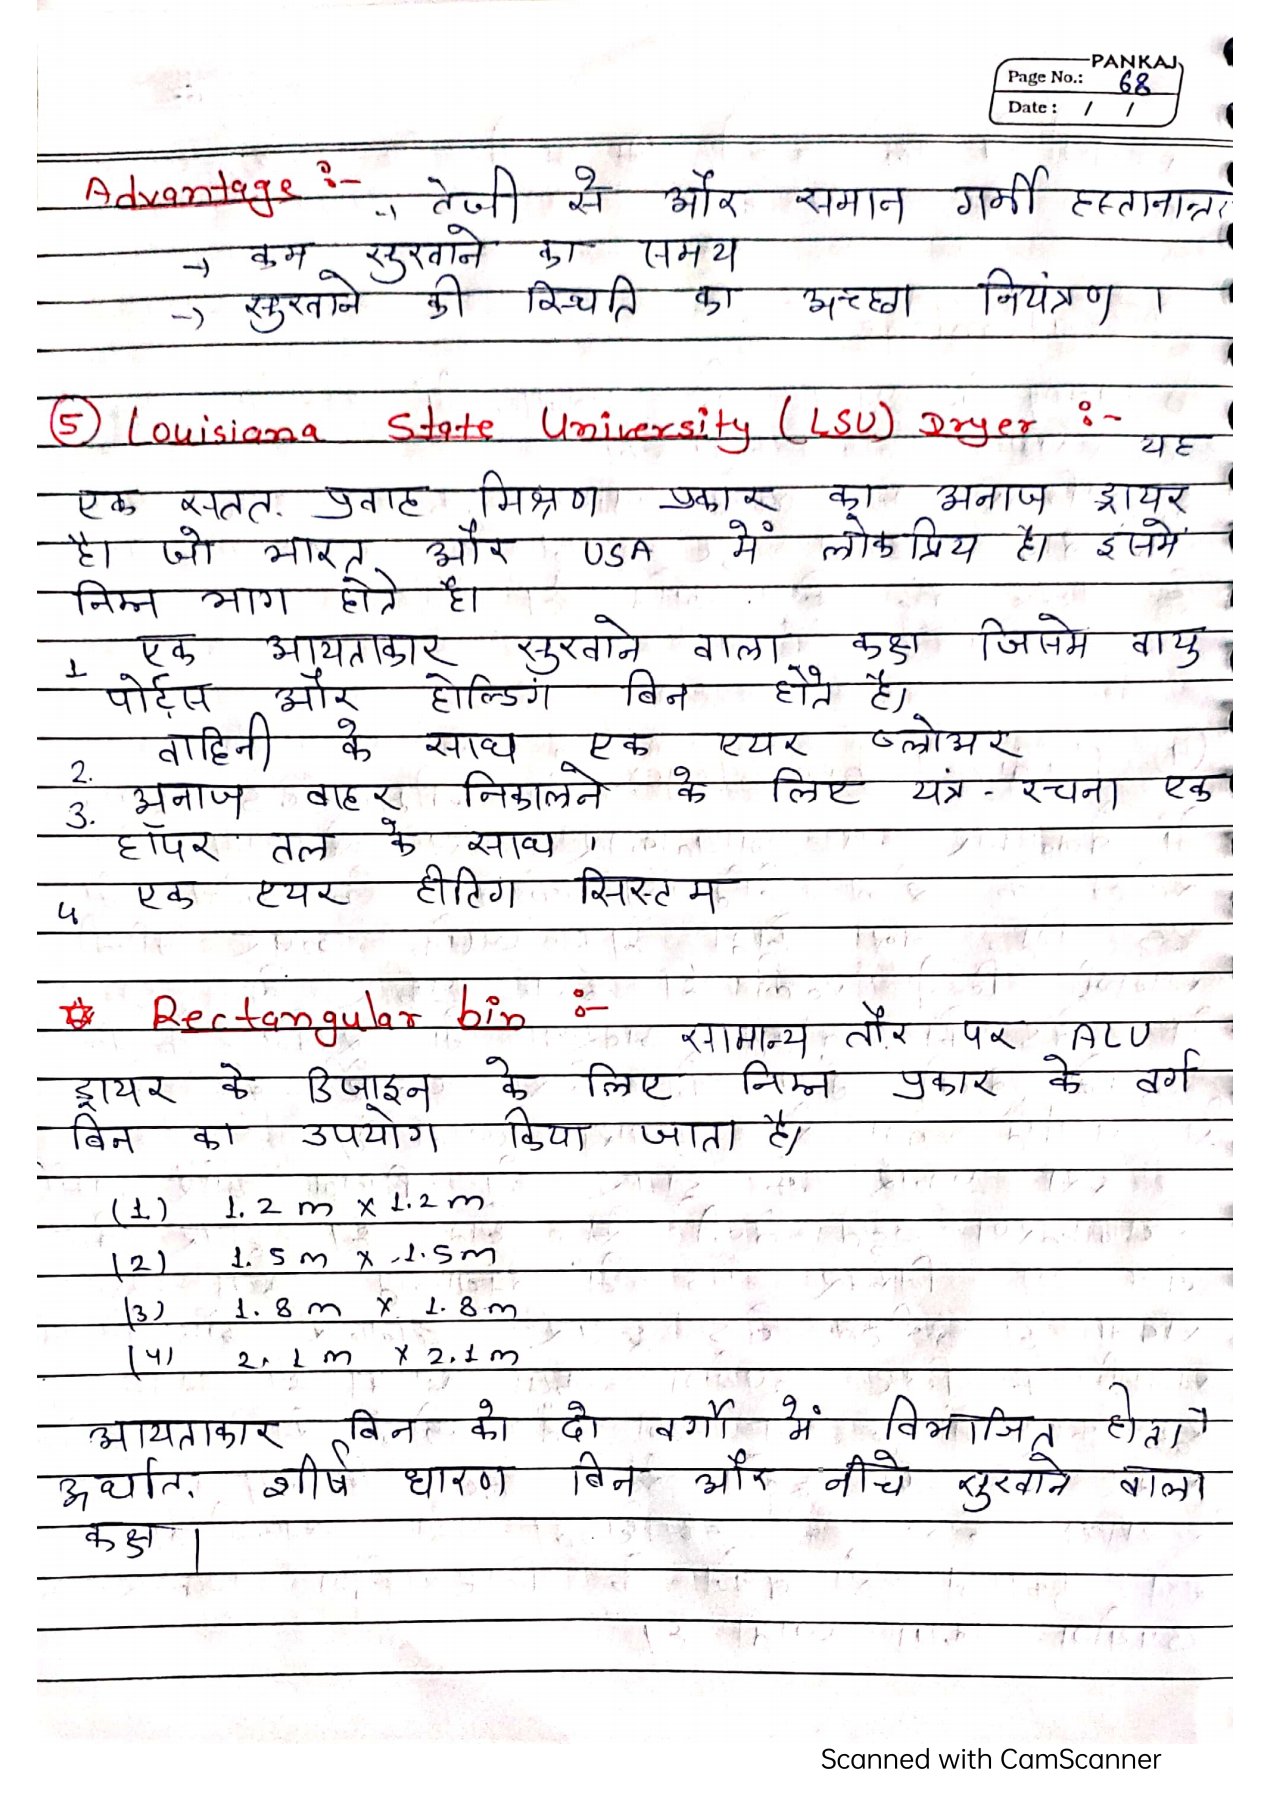 PANKAJ
Page No.: 68
Date : / /
Advantage :-
→ तेजी से और समान गर्मी हस्तानान्तर
→ कम सुखाने का समय
→ सुखाने की स्थिति का अच्छा नियंत्रण ।
⑤ Louisiana State University (LSU) Dryer :-
यह
एक सतत प्रवाह मिश्रण प्रकार का अनाज ड्रायर
है। जो भारत और USA में लोकप्रिय है। इसमें
निम्न भाग होते है।
1 एक आयताकार सुखाने वाला कक्ष जिसमे वायु
पोर्ट्स और होल्डिंग बिन होते है।
2. वाहिनी के साथ एक एयर ब्लोअर
3. अनाज बाहर निकालने के लिए यंत्र - रचना एक
हॉपर तल के साथ ।
4 एक एयर हीटिग सिस्टम
☆ Rectangular bin :-
सामान्य तौर पर ALU
ड्रायर के डिजाइन के लिए निम्न प्रकार के वर्ग
बिन का उपयोग किया जाता है।
(1) 1.2 m x 1.2 m
(2) 1.5 m x 1.5m
(3) 1.8 m x 1.8 m
(4) 2.1 m x 2.1 m
आयताकार बिन को दो वर्गो में विभाजित होता
अर्थात. शीर्ष धारण बिन और नीचे सुखाने वाला
कक्ष |
Scanned with CamScanner